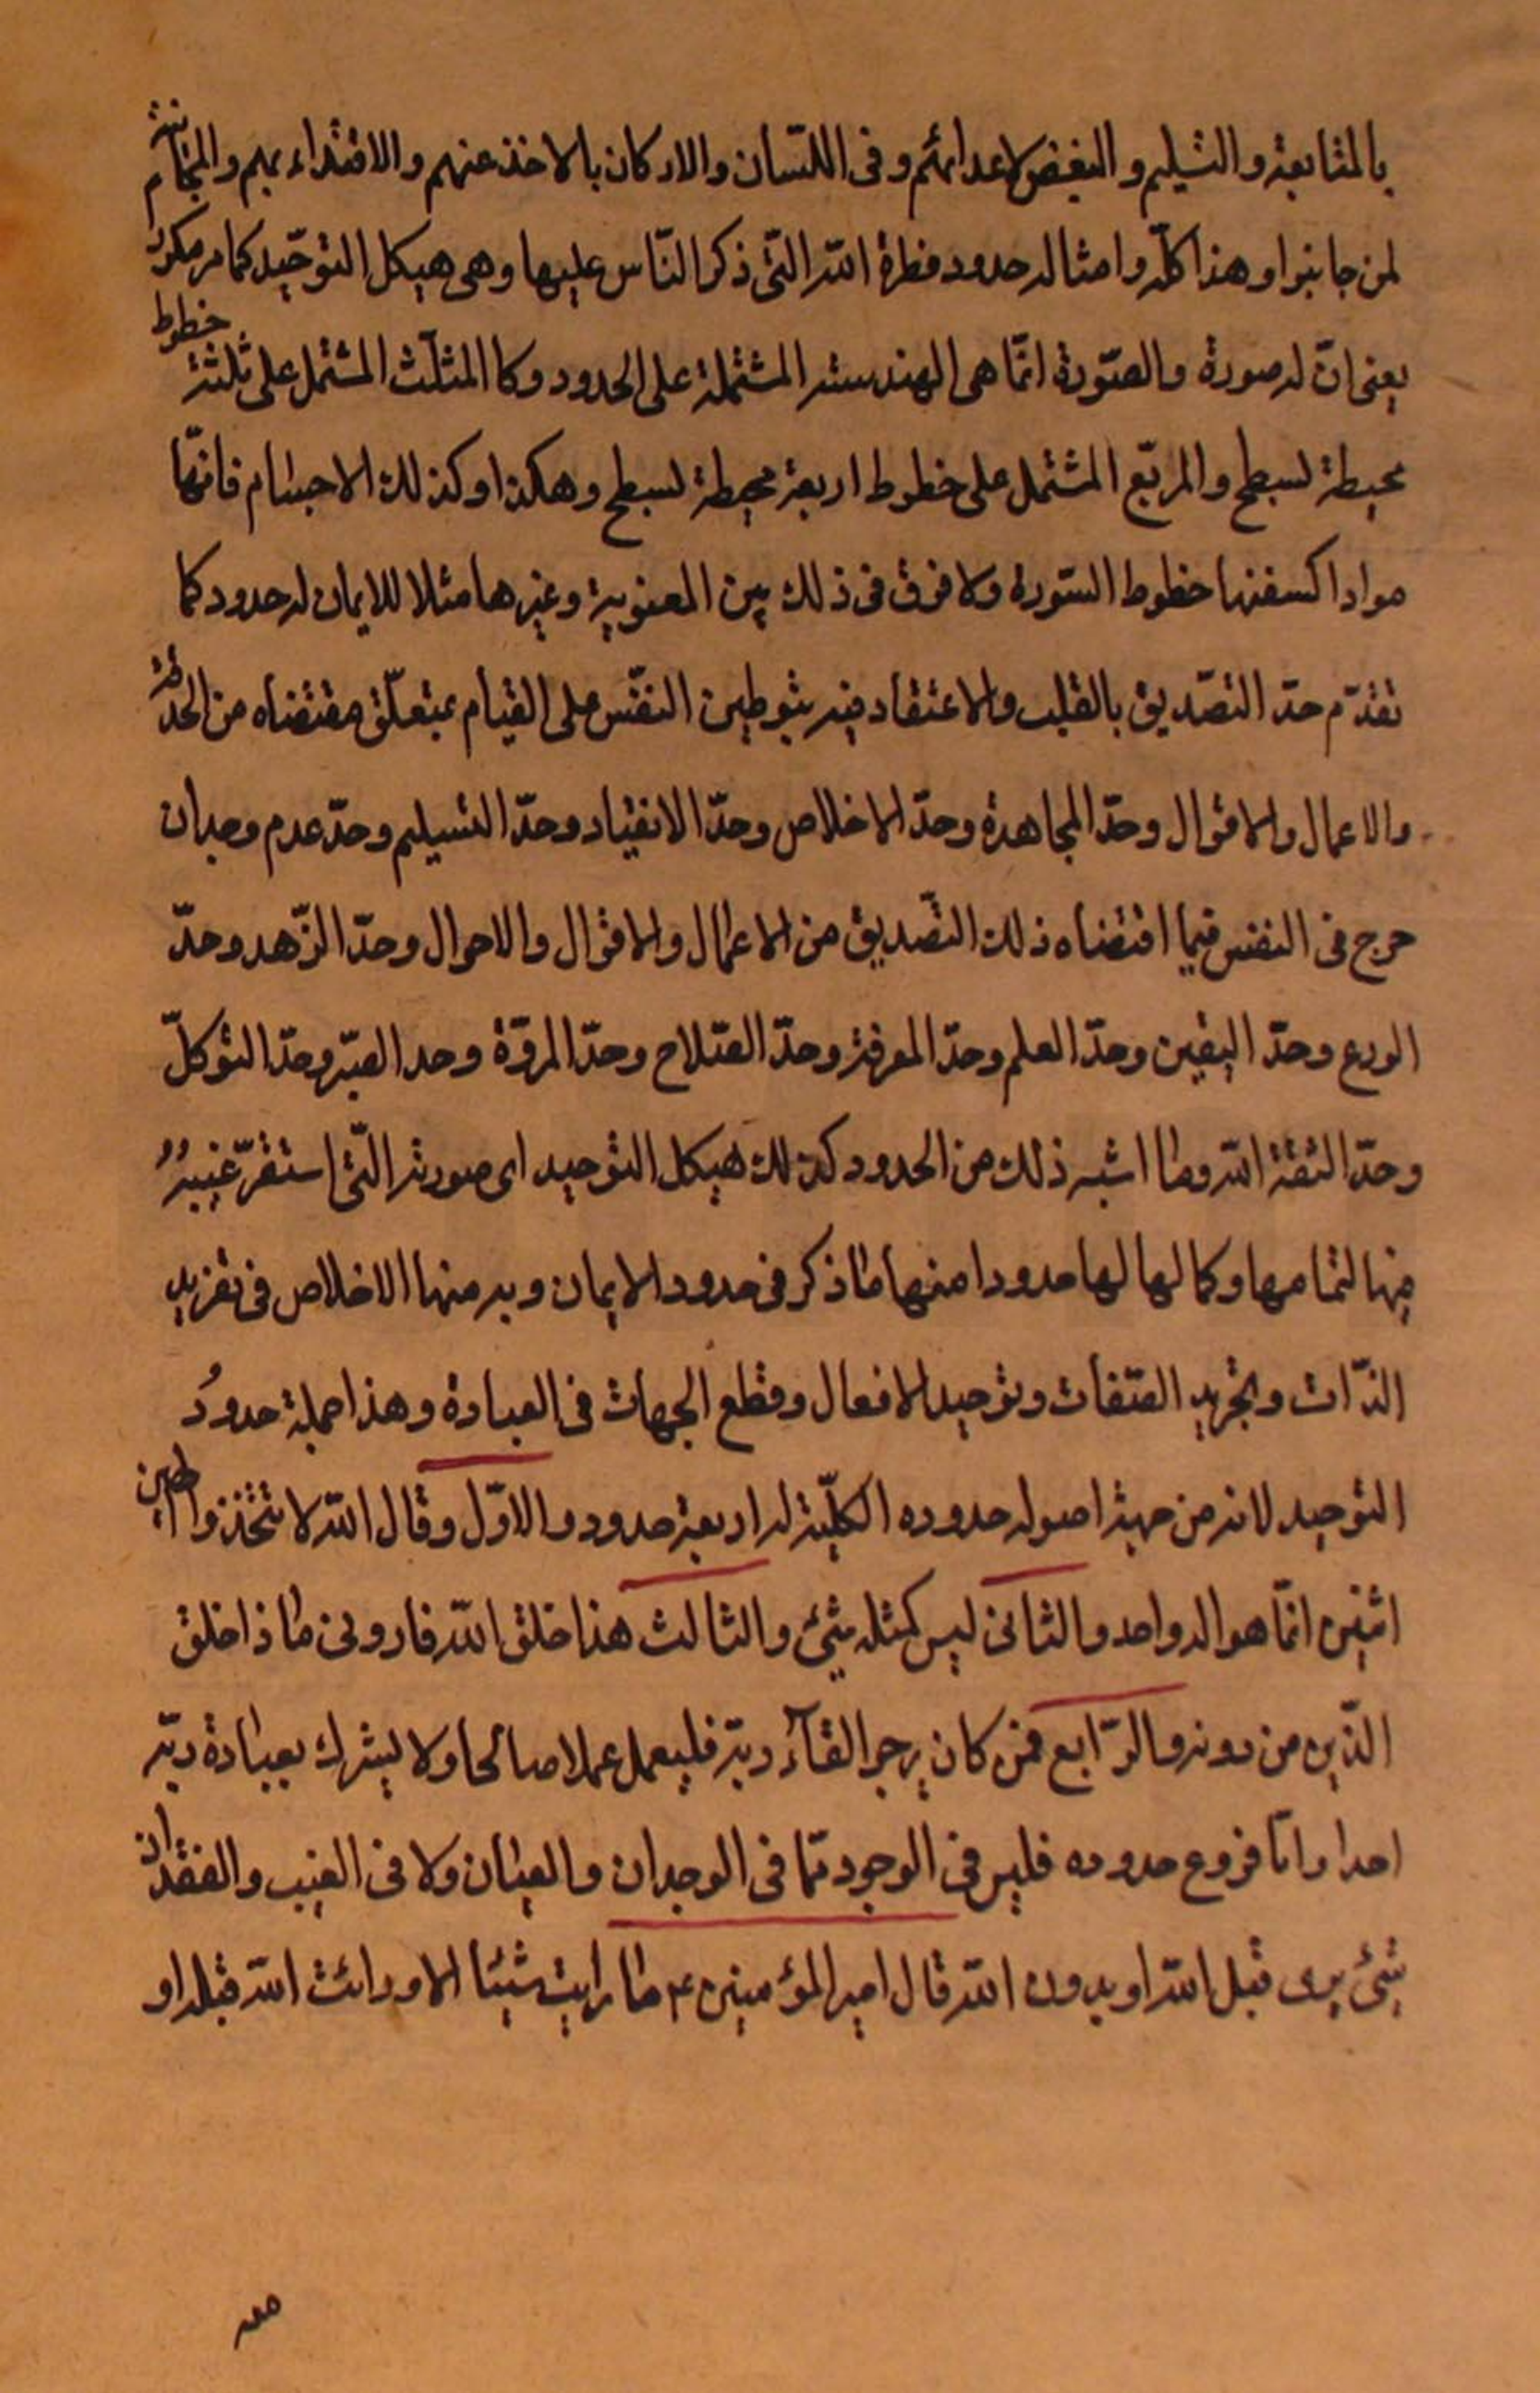 بالمتابعة والتسليم والبغض لاعدائهم وفى اللسان والاركان بالاخذ عنهم والاقتداء بهم والمجانبة
لمن جانبوا وهذا كلّه وامثاله حدود فطرة الله التى ذكر النّاس عليها وهى هيكل التوحّيد كما مر مكررا
يعنى انّ له صورة والصّورة انّما هى الهندسته المشتملة على الحدود وكا المثلّث المشتمل على ثلثة خطوط
محيطة لسطح والمربّع المشتمل على خطوط اربعة محيطة لسطح وهكذا وكذلك الاجسام فانّها
مواد اكسفنها خطوط السّورة ولا فرق فى ذلك بين المعنوية وغيرها مثلا للايمان له حدود كما
تقدّم حدّ التصّديق بالقلب والاعتقاد فيه بتوطين النفّس على القيام بمتعلّق مقتضاه من الخدمة
والاعمال والاقوال وحدّ المجاهدة وحدّ الاخلاص وحدّ الانقياد وحدّ التسليم وحدّ عدم وجدان
حرج فى النفس فيما اقتضاه ذلك التصّديق من الاعمال والاقوال والاحوال وحدّ الزّهد وحدّ
الورع وحدّ اليقين وحدّ العلم وحدّ المعرفة وحدّ الصّلاح وحدّ المروّة وحد الصبّر وحدّ التوكلّ
وحدّ الثقة الله وما اشبه ذلك من الحدود كذلك هيكل التوحيد اى صورته التّى استقرّ غيبه
فيها لتمامها وكمالها لها حدودا منها ما ذكر فى حدود الايمان وبه منها الاخلاص فى تفريد
الذّات وتجريد الصّفات وتوحيد الافعال وقطع الجهات فى العبادة وهذا جملة حدود
التوحيد لانه من جهة اصوله حدوده الكلّية له اربعة حدود والاوّل وقال الله لا تتّخذوا الهين
اثنين انّما هو اله واحد والثانى ليس كمثله شئ والثالث هذا خلق الله فارونى ماذا خلق
الذّين من دونه والرّابع فمن كان يرجوا لقآء ربّه فليعمل عملا صالحا ولا يشرك بعبادة ربّه
احدا وامّا فروع حدوده فليس فى الوجود ممّا فى الوجدان والعيان ولا فى الغيب والفقدان
شئ يرى قبل الله او بدون الله قال امير المؤمنين ع ما رايت شيئا الا ورائت الله قبله او
معه